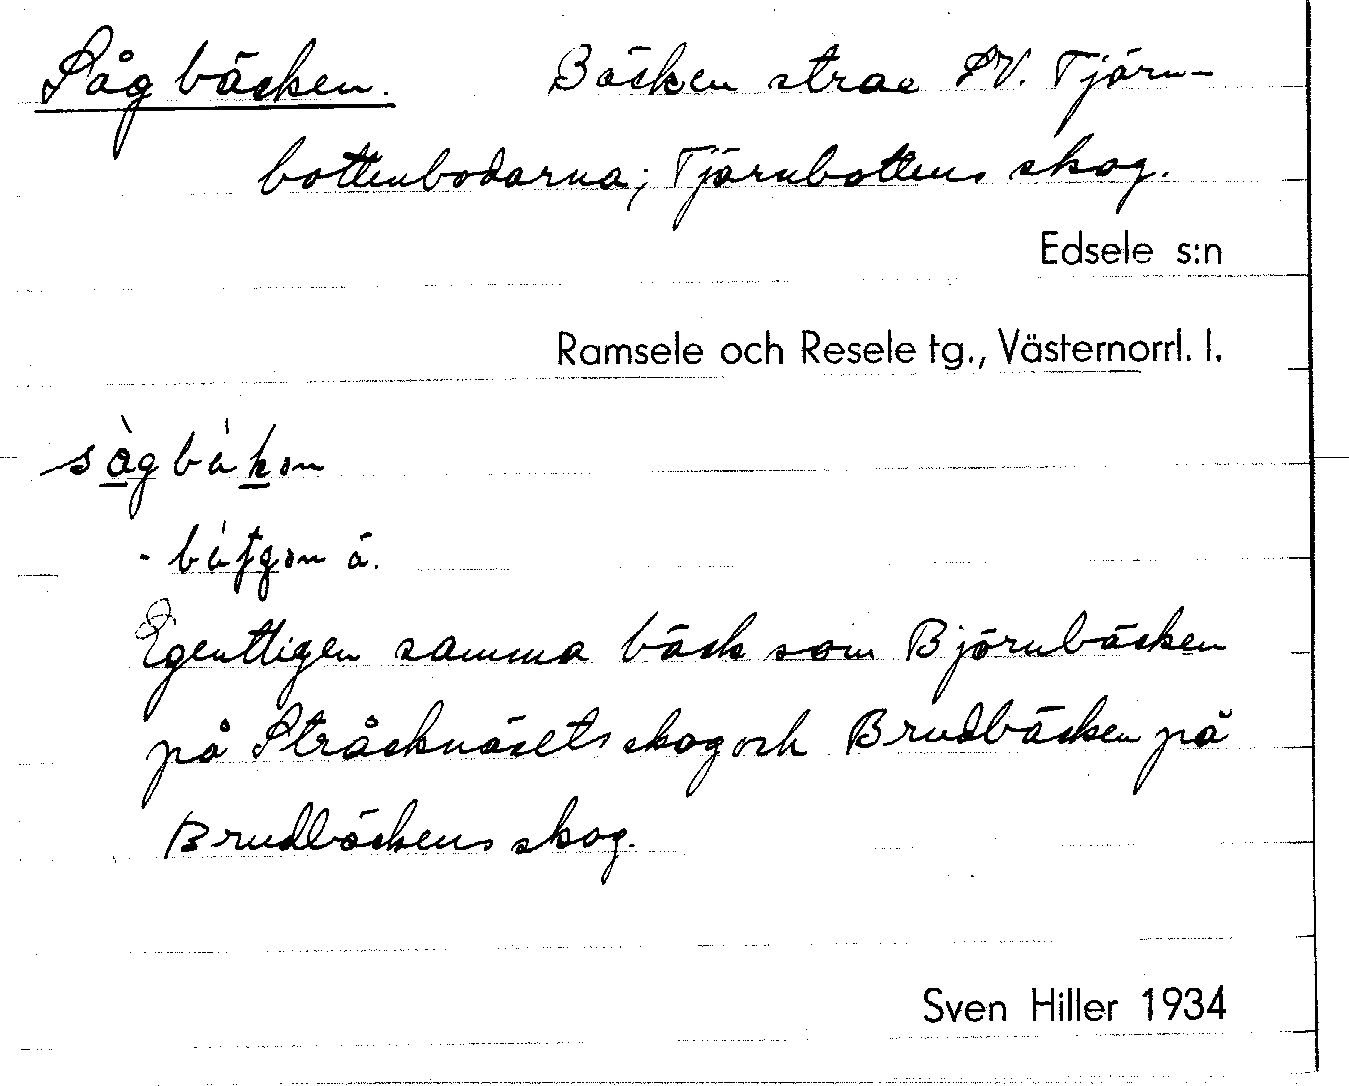 Sågbäcken. Bäcken strax SV. Tjärn-
bottenbodarna; Tjärnbottens skog.
Edsele s:n
Ramsele och Resele tg., Västernorrl. l.
Egentligen samma bäck som Björnbäcken
på Stråcknäsets skog och Brudbäcken på
Brudbäckens skog.
Sven Hiller 1934